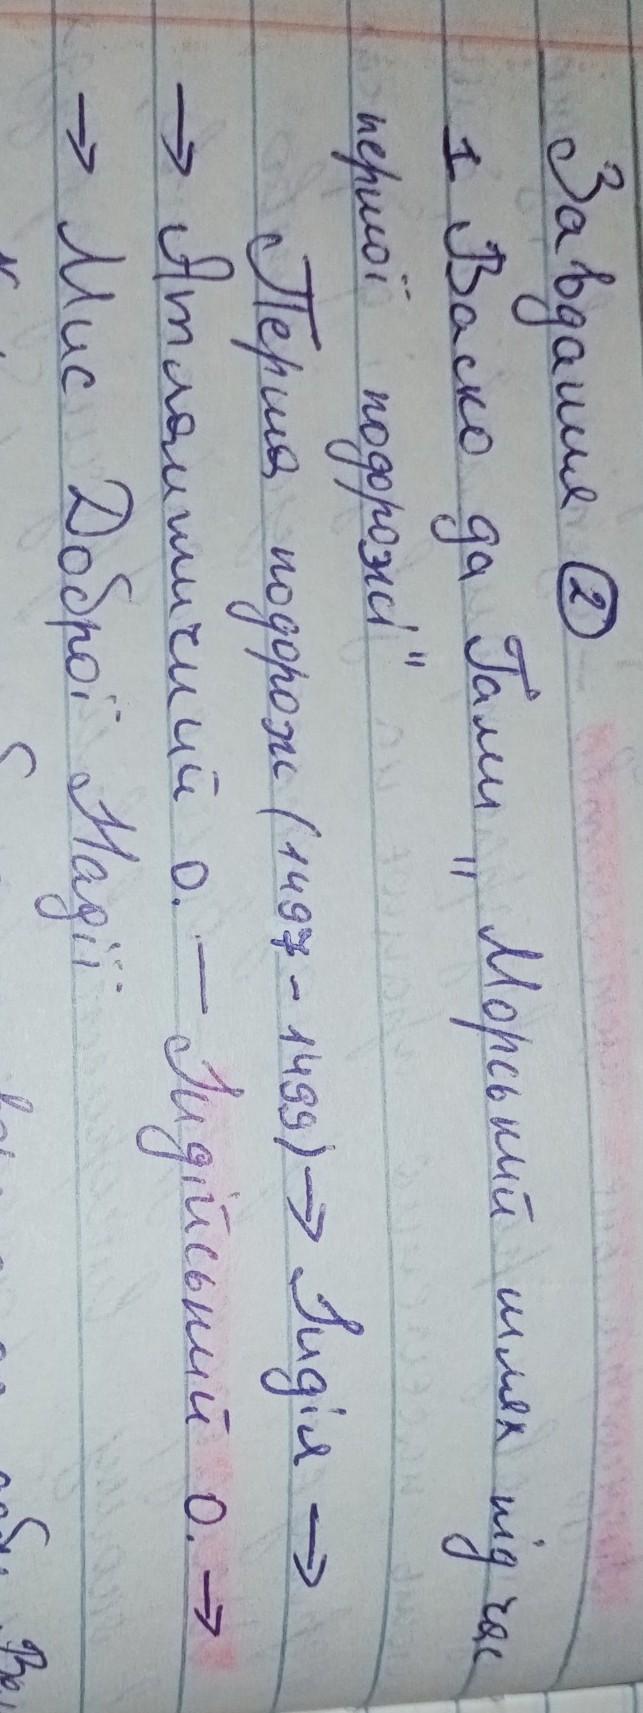 Завдання 2
1 Васко да Гами „ Морський шлях під час
першої подорожі"
Перша подорож (1497-1499) → Індія →
→ Атлантичний о. — Індійський о. →
→ Мис Доброї Надії